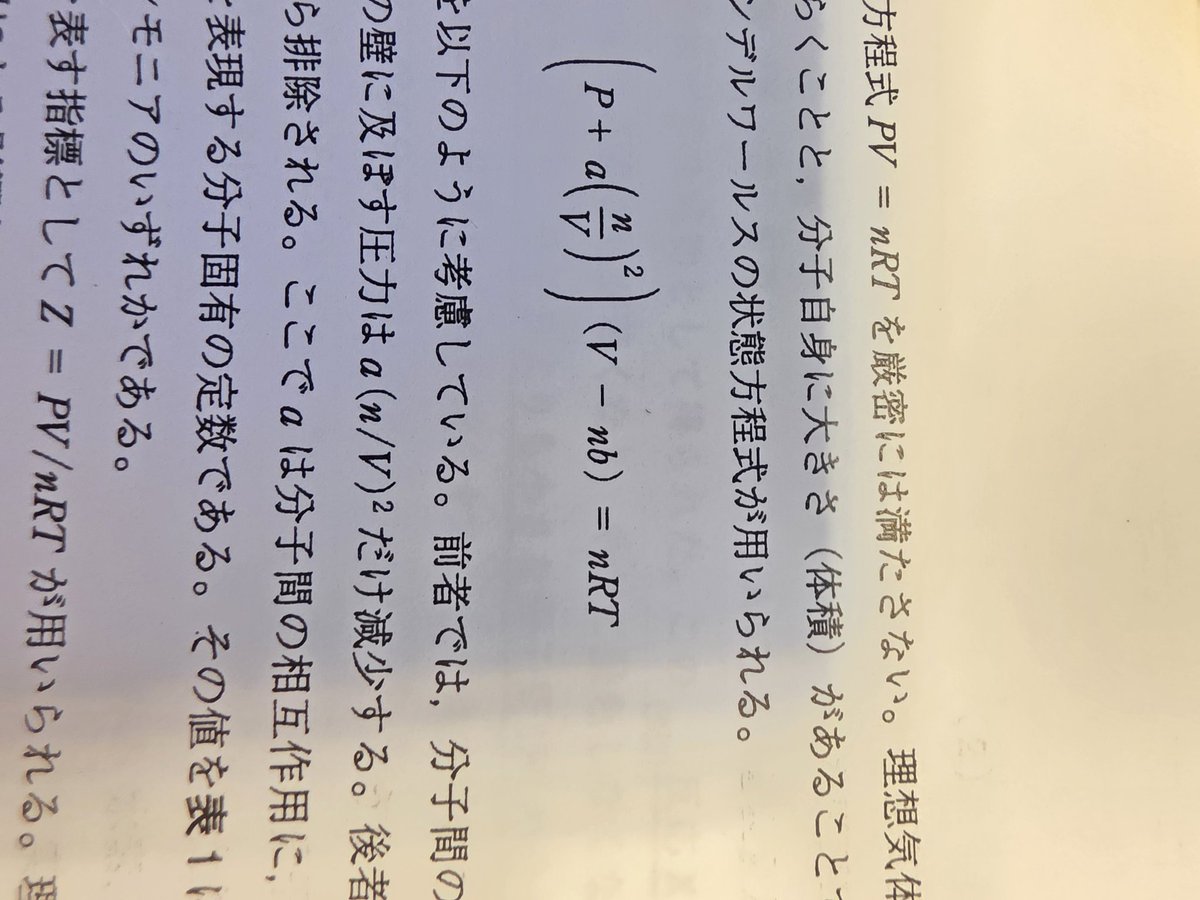 方程式 PV = nRT を厳密には満たさない。理想気体
らくことと，分子自身に大きさ（体積）があること
ンデルワールスの状態方程式が用いられる。
(P + a(n/V)²)(V − nb) = nRT
を以下のように考慮している。前者では，分子間の
の壁に及ぼす圧力は a(n/V)² だけ減少する。後者
ら排除される。ここで a は分子間の相互作用に，
を表現する分子固有の定数である。その値を表1に
ンモニアのいずれかである。
表す指標として Z = PV/nRT が用いられる。理